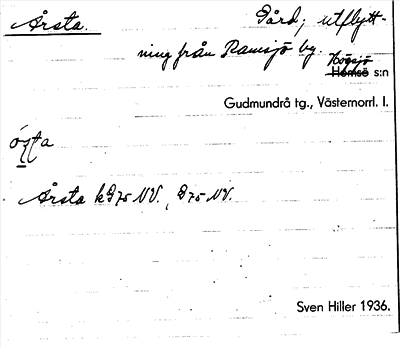 Årsta. Gård; utflytt-
ning från Ramsjö by. Högsjö
Hemsö s:n
Gudmundrå tg., Västernorrl. l.
ó̱ʂta
Årsta kG75 NV., G75 NV.
Sven Hiller 1936.